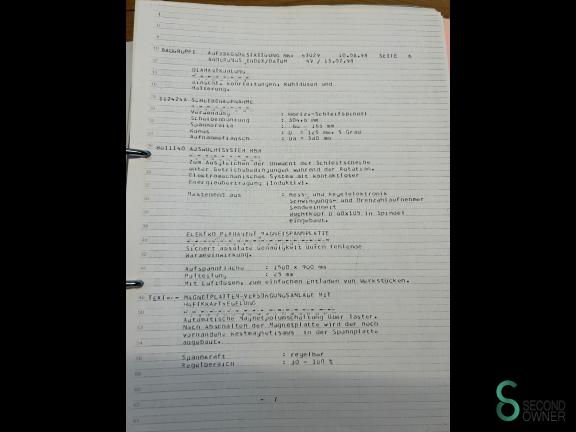 BAUGRUPPE AUFTRAGSBESTÄTIGUNG NR. 10.08.98 SEITE 6
ÄNDERUNGS INDEX/DATUM
ÖLANLAUFKÜHLUNG,
einschl. Rohrleitungen, Kühldüsen und
Halterung.
SCHEIBENAUFNAHME
Verwendung : Horiz.-Schleifspindel
Scheibenbohrung : 304,8 mm
Spannbreite : 60 - 165 mm
Konus : 5 Grad
Aufnahmeflansch : Da = 380 mm
AUSWUCHTSYSTEM
Zum Ausgleichen der Unwucht der Schleifscheibe
unter Betriebsbedingungen während der Rotation.
Elektromechanisches System mit kontaktloser
Energieübertragung (induktiv).
bestehend aus : Mess- und Regelelektronik
Schwingungs- und Drehzahlaufnehmer
Sendeeinheit
Wuchtkopf D 60x105 in Spindel
eingebaut.
ELEKTRO PERMANENT MAGNETSPANNPLATTE
Sichert absolute Genauigkeit durch fehlende
Wärmeeinwirkung.
Aufspannfläche : 1500 x 700 mm
Polteilung : 25 mm
Mit Luftdüsen, zum einfachen Entladen von Werkstücken.
MAGNETPLATTEN-VERSORGUNGSANLAGE MIT
HAFTKRAFTREGELUNG
Automatische Magnetpolumschaltung über Taster.
Nach Abschalten der Magnetplatte wird der noch
vorhandene Restmagnetismus in der Spannplatte
abgebaut.
Spannkraft : regelbar
Regelbereich : 30 - 100 %
- 7
SECOND
OWNER